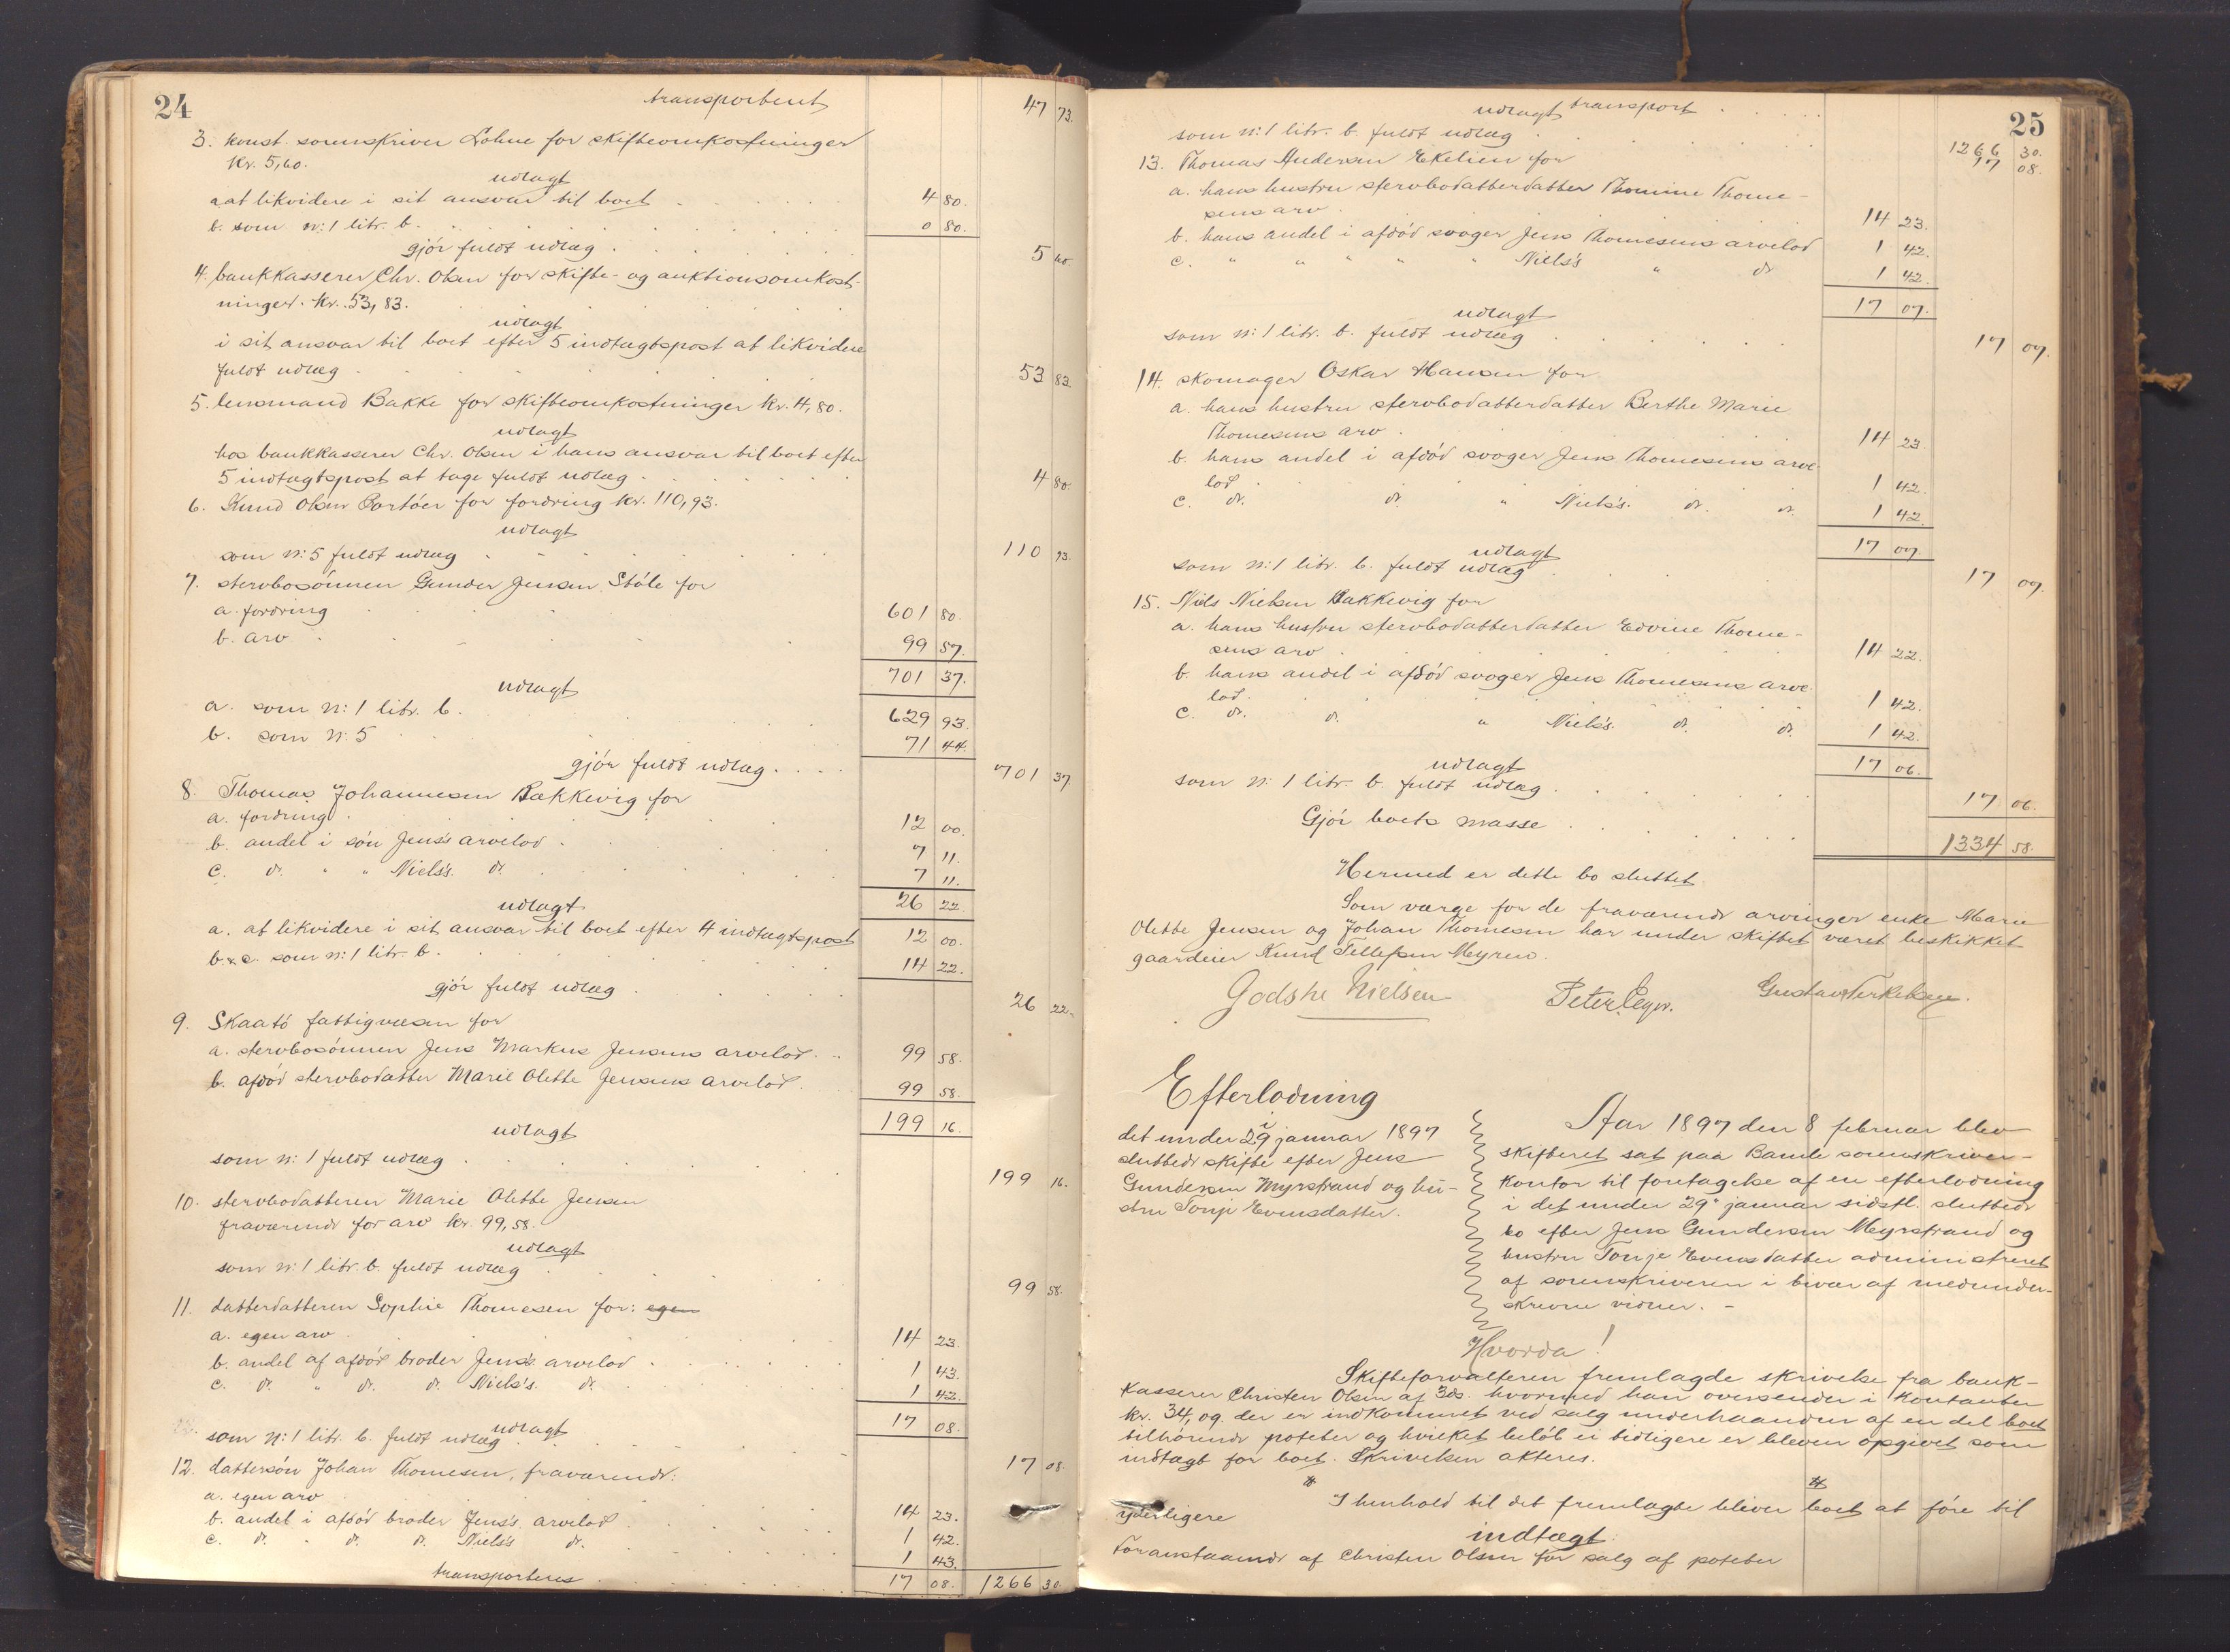 24
transportert 47 73.
3. konst. sorenskriver Lohne for skifteomkostninger
kr. 5,60.
udlagt
a. at likvidere i sit ansvar til boet 4 80.
b. som n: 1 litr. b. 0 80.
gjör fuldt udlæg 5 60.
4. bankkasserer Chr. Olsen for skifte- og auktionsomkost-
ninger. kr. 53,83.
udlagt
i sit ansvar til boet efter 5 indtægtspost at likvidere
fuldt udlæg 53 83.
5. lensmand Bakke for skifteomkostninger kr. 4,80.
udlagt
hos bankkasserer Chr. Olsen i hans ansvar til boet efter
5 indtægtspost at tage fuldt udlæg 4 80.
6. Knud Olsen Portöer for fordring kr. 110,93.
udlagt
som n: 5 fuldt udlæg 110 93.
7. stervbosönnen Gunder Jensen Stöle for
a. fordring 601 80.
b. arv 99 57.
701 37.
udlagt
a. som n: 1 litr. b. 629 93.
b. som n: 5 71 44.
gjör fuldt udlæg 701 37.
8. Thomas Johannesen Bakkevig for
a. fordring 12 00.
b. andel i sön Jens's arvelod 7 11.
c. dr. " " Niels's. dr. 7 11.
26 22.
udlagt
a. at likvidere i sit ansvar til boet efter 4 indtægtspost 12 00.
b. & c. som n: 1 litr. b. 14 22.
gjör fuldt udlæg 26 22.
9. Skaatö fattigvæsen for
a. stervbosönnen Jens Markus Jensens arvelod 99 58.
b. afdöd stervbodatter Marie Olette Jensens arvelod 99 58.
199 16.
udlagt
som n: 1 fuldt udlæg 199 16.
10. stervbodatteren Marie Olette Jensen
fraværende for arv kr. 99,58.
udlagt
som n: 1 litr. b. fuldt udlæg 99 58.
11. datterdatteren Sophie Thomesen for: egen
a. egen arv 14 23.
b. andel af afdöd broder Jens's arvelod 1 43.
c. dr. " dr. dr. Niels's. dr. 1 42.
17 08.
udlagt
som n: 1 litr. b. fuldt udlæg 17 08.
12. dattersön Johan Thomesen, fraværende:
a. egen arv 14 23.
b. andel i afdöd broder Jens's arvelod 1 42.
c. dr. " dr. dr. Niels's dr. 1 43.
transporteres 17 08. 1266 30.
25
udlagt transport 1266 30.
som n: 1 litr. b. fuldt udlæg 17 08.
13. Thomas Andersen Ekelien for
a. hans hustru stervbodatterdatter Thomine Thome-
sens arv 14 23.
b. hans andel i afdöd svoger Jens Thomesens arvelod 1 42.
c. " " " " " Niels's " dr 1 42.
17 07.
udlagt
som n: 1 litr. b. fuldt udlæg 17 07.
14. skomager Oskar Hansen for
a. hans hustru stervbodatterdatter Berthe Marie
Thomesens arv 14 23
b. hans andel i afdöd svoger Jens Thomesens arve-
lod 1 42.
c. dr. dr. " Niels's. dr. dr. 1 42.
17 07.
udlagt
som n: 1 litr. b. fuldt udlæg 17 07.
15. Niels Nielsen Bakkevig for
a. hans hustru stervbodatterdatter Edvine Thome-
sens arv 14 22.
b. hans andel i afdöd svoger Jens Thomesens arve-
lod 1 42.
c. dr. dr. " Niels's. dr. dr. 1 42.
17 06.
udlagt
som n: 1 litr. b. fuldt udlæg 17 06.
Gjör boets masse 1334 58.
Hermed er dette bo sluttet.
Som værge for de fraværende arvinger enke Marie
Olette Jensen og Johan Thomesen har under skiftet været beskikket
gaardeier Knud Tellefsen Myren.
Godske Nielsen Gustav Terkelsen.
Efterlodning
i
det under 29 januar 1897
sluttede skifte efter Jens
Gundersen Myrstrand og hu-
stru Tonje Evensdatter.
Aar 1897 den 8 februar blev
skifteret sat paa Bamle sorenskriver-
kontor til foretagelse af en efterlodning
i det under 29. januar sidstl. sluttede
bo efter Jens Gundersen Myrstrand og
hustru Tonje Evensdatter administreret
af sorenskriveren i bivær af medunder-
skrevne vidner. –
Hvorda!
Skifteforvalteren fremlagde skrivelse fra bank-
kasserer Christen Olsen af 3ds. hvorved han oversender i kontanter
kr. 34,00 der er indkommet ved salg underhaanden af en del boet
tilhörende poteter og hvilket belöb ei tidligere er bleven opgivet som
indtægt for boet. Skrivelsen akteres.
I henhold til det fremlagte bliver boet at före til
yderligere
indtægt:
Foranstaaende af Christen Olsen for salg af poteter